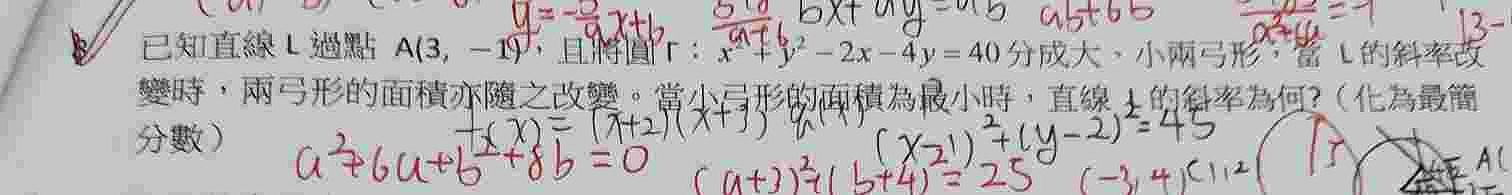 y=-\frac{b}{a}x+b bx+ay=ab ab+6b
已知直線 L 過點 A(3, -1)，且將圓 Γ：x²+y²-2x-4y=40 分成大、小兩弓形，當 L 的斜率改
變時，兩弓形的面積亦隨之改變。當小弓形的面積為最小時，直線 L 的斜率為何?（化為最簡
分數） f(x)=(x+2)(x+3) (x-1)²+(y-2)²=45
a²+6a+b²+8b=0 (a+3)²+(b+4)²=25 (-3,4) (1,2